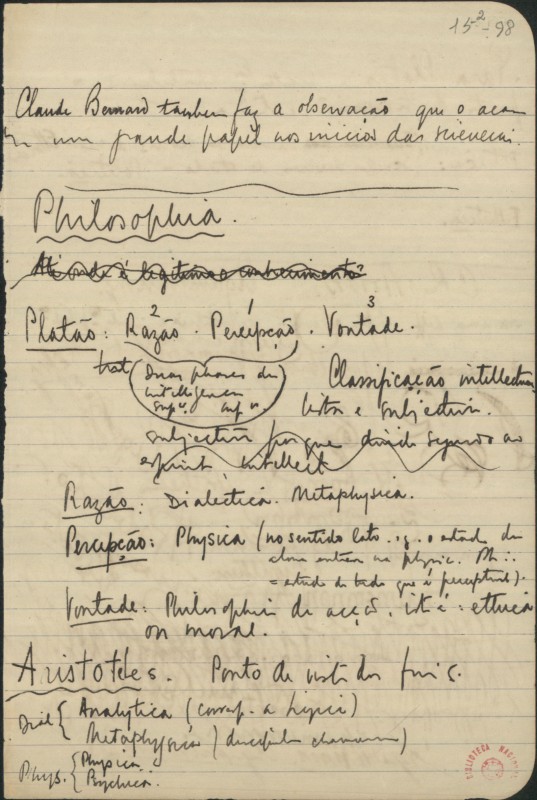 15-2-98
Claude Bernard tambem faz a observação que o acaso
um grande papel nos inicios das sciencias.
Philosophia.
Até onde é legitimo o conhecimento?
2 1 3
Platão: Razão. Percepção. Vontade.
(Duas phases da
intelligencia
supr. infr.
Classificação intellectua-
lista e subjectiva.
subjectiva porque divide segundo ao
espirito, intellect
Razão: Dialectica. Metaphysica.
Percepção: Physica (no sentido lato. e.g. o estudo da
alma entrava na physica. Ph.:.
= estudo de tudo que é perceptivel).
Vontade: Philosophia da acção, isto é: ethica
ou moral.
Aristoteles. Ponto de vista dos fins.
Dial { Analytica (corresp. a Logica)
Metaphysica) discipulos chamaram)
Phys. { Physica
Psychica.
BIBLIOTECA NACIONAL